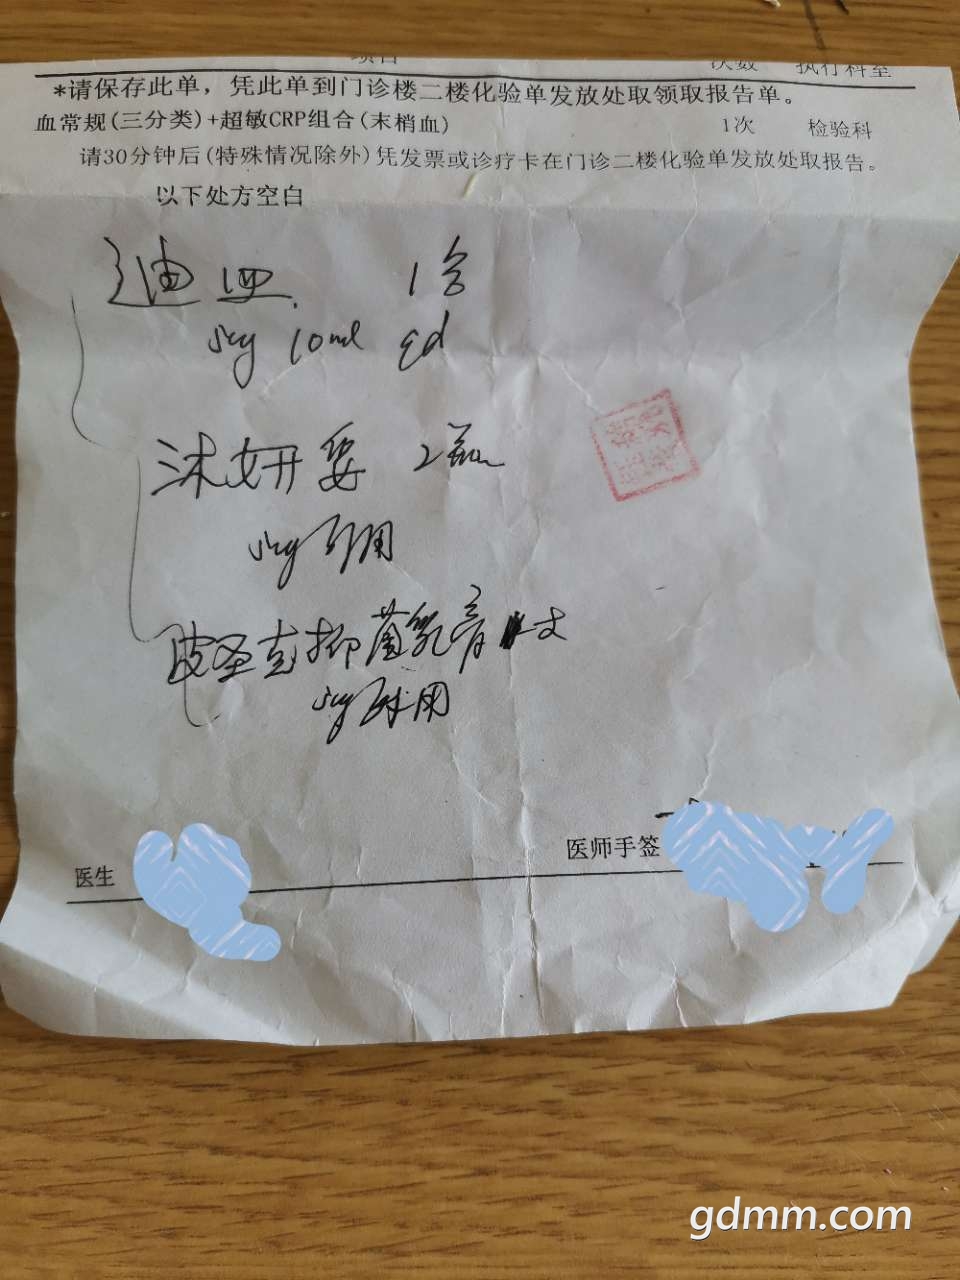 项目 次数 执行科室
*请保存此单，凭此单到门诊楼二楼化验单发放处取领取报告单。
血常规(三分类)+超敏CRP组合(末梢血) 1次 检验科
请30分钟后(特殊情况除外)凭发票或诊疗卡在门诊二楼化验单发放处取报告。
以下处方空白
迪巧 1盒
10ml qd
沐妍 2
外用
皮圣克抑菌乳膏 支
外用
医师手签
医生
gdmm.com